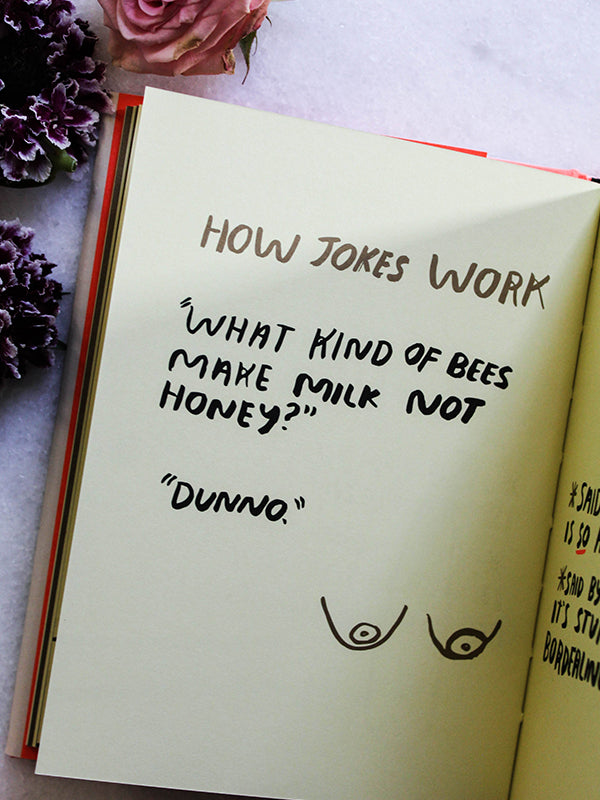 HOW JOKES WORK
"WHAT KIND OF BEES
MAKE MILK NOT
HONEY?"
"DUNNO."
*SAID
IS SO
*SAID BY
IT'S